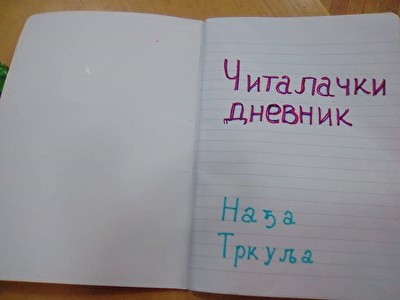 Читалачки
дневник
Нађа
Тркуља